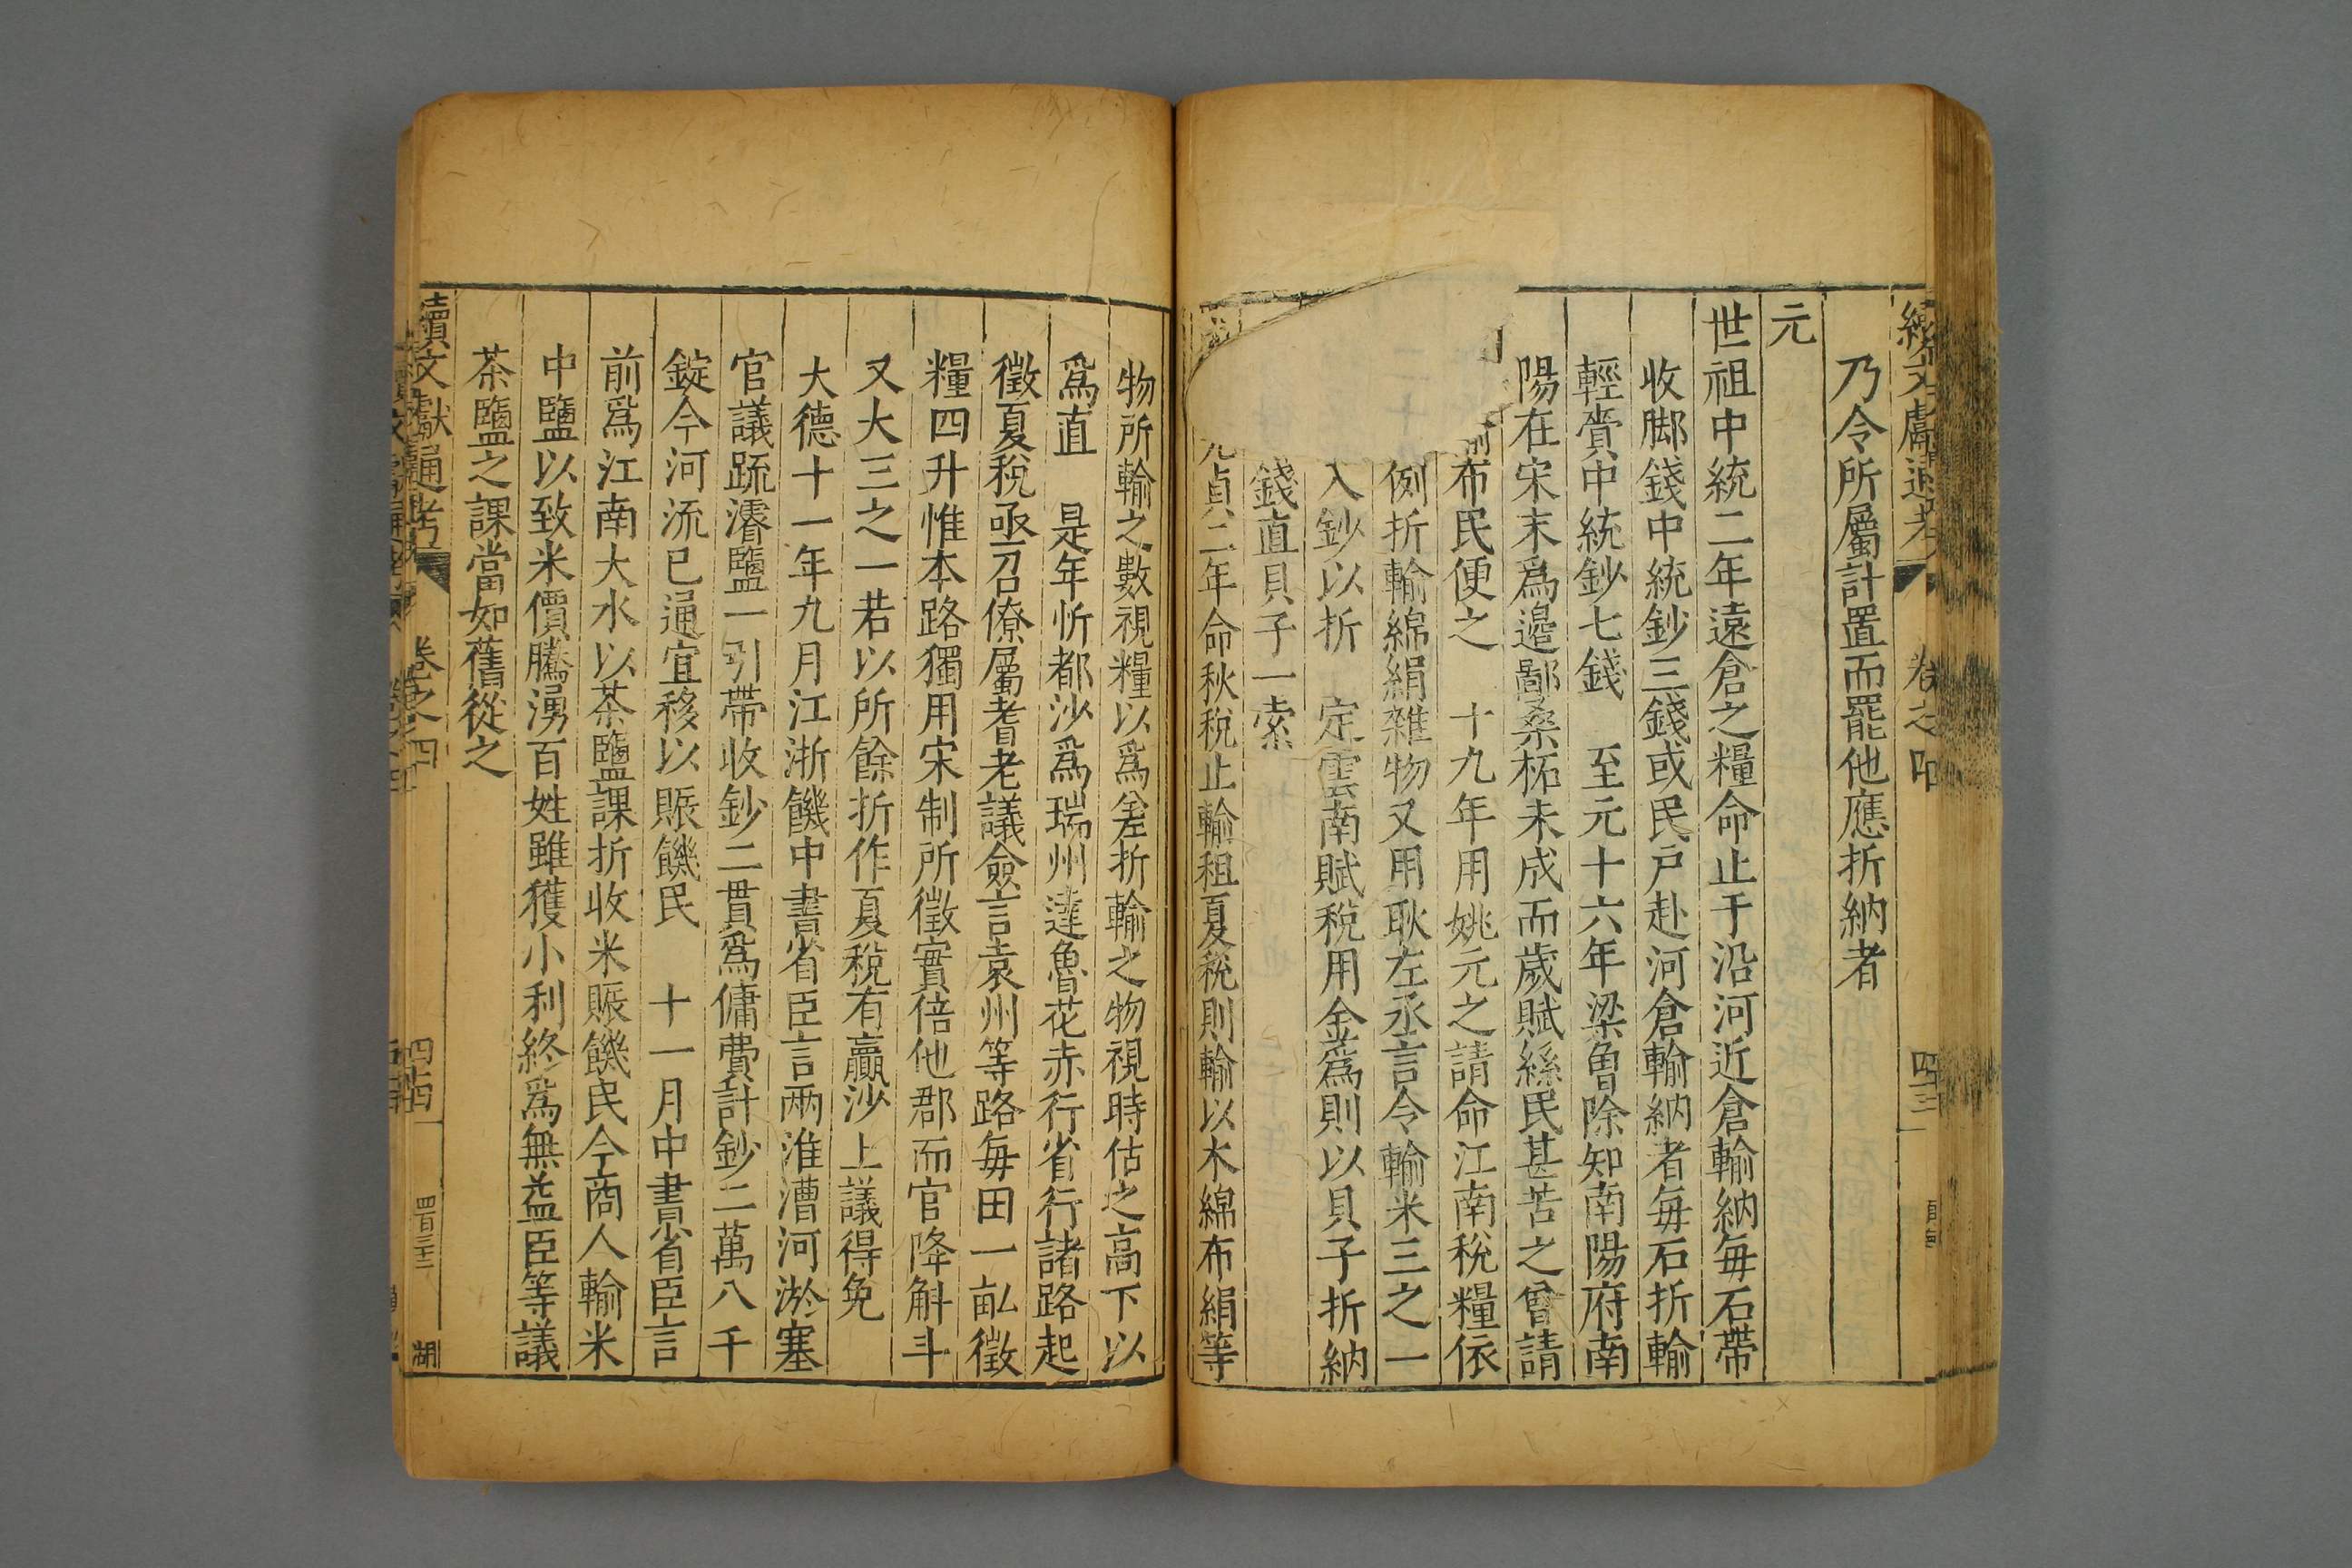 續文獻通考 卷之四 四三
乃令所屬計置而罷他應折納者
元
世祖中統二年遠倉之糧命止于沿河近倉輸納每石帶
收脚錢中統鈔三錢或民戶赴河倉輸納者每石折輸
輕賫中統鈔七錢 至元十六年梁魯除知南陽府南
陽在宋末爲邊鄙桑柘未成而歲賦絲民甚苦之曾請
布民便之 十九年用姚元之請命江南稅糧依
例折輸綿絹雜物又用耿左丞言令輸米三之一
入鈔以折 定雲南賦稅用金爲則以貝子折納
錢直貝子一索
元貞二年命秋稅止輸租夏稅則輸以木綿布絹等
物所輸之數視糧以爲差折輸之物視時估之高下以
爲直 是年忻都沙爲瑞州達魯花赤行省行諸路起
徵夏稅亟召僚屬耆老議僉言袁州等路每田一畝徵
糧四升惟本路獨用宋制所徵實倍他郡而官降斛斗
又大三之一若以所餘折作夏稅有贏沙上議得免
大德十一年九月江浙饑中書省臣言兩淮漕河淤塞
官議疏濬鹽一引帶收鈔二貫爲傭費計鈔二萬八千
錠今河流已通宜移以賑饑民 十一月中書省臣言
前爲江南大水以茶鹽課折收米賑饑民今商人輸米
中鹽以致米價騰湧百姓雖獲小利終爲無益臣等議
茶鹽之課當如舊從之
續文獻通考 卷之四 四十四 四百三十三 湖